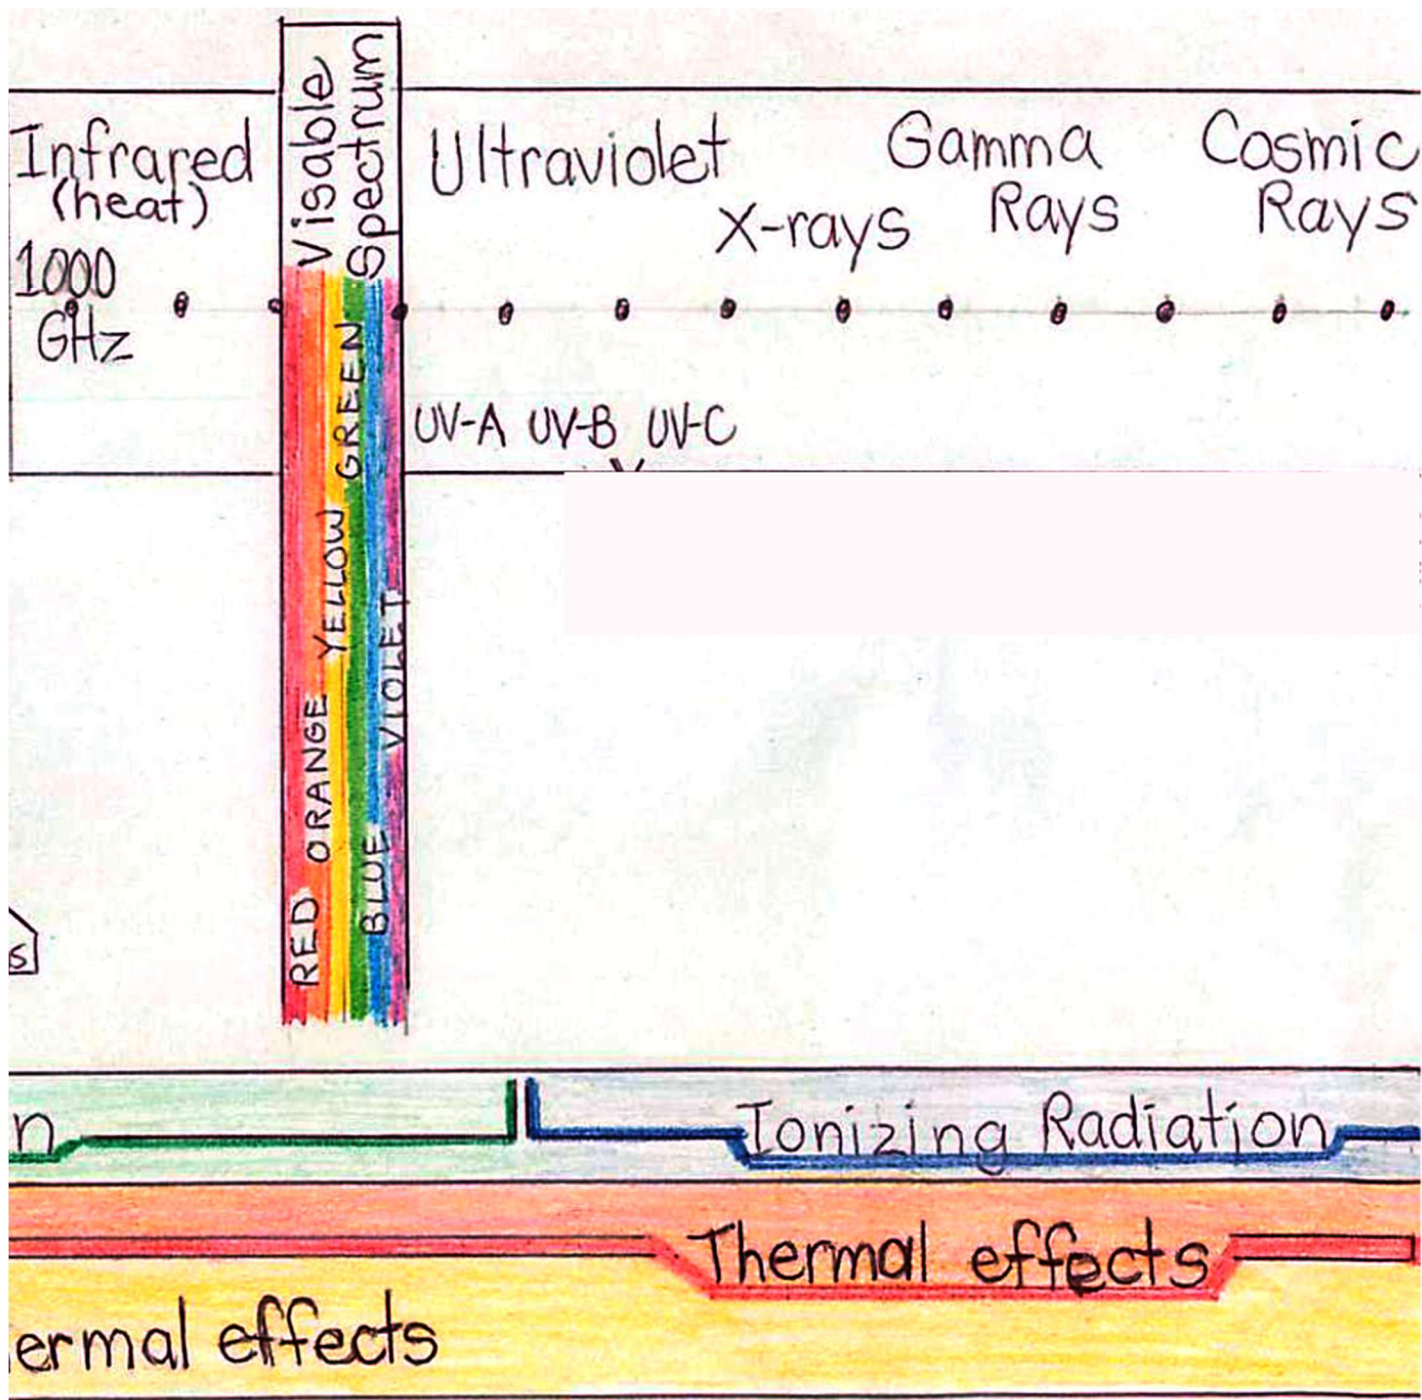 Infrared
(heat)
1000
GHz
Visable
Spectrum
Ultraviolet
X-rays
Gamma
Rays
Cosmic
Rays
UV-A UV-B UV-C
RED
ORANGE
YELLOW
GREEN
BLUE
VIOLET
s
n
Ionizing Radiation
Thermal effects
ermal effects